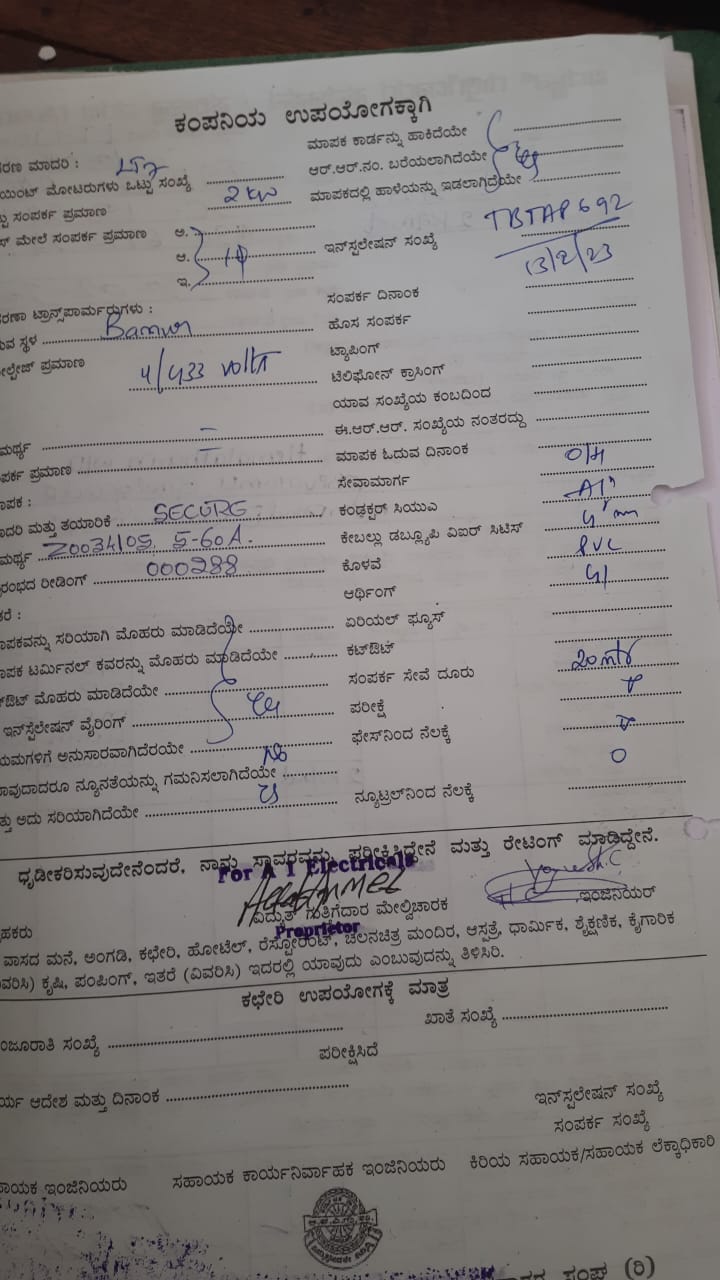 ಕಂಪನಿಯ ಉಪಯೋಗಕ್ಕಾಗಿ
ಮಾಪಕ ಕಾರ್ಡನ್ನು ಹಾಕಿದೆಯೇ
ರಣ ಮಾದರಿ :
ಆರ್.ಆರ್.ನಂ. ಬರೆಯಲಾಗಿದೆಯೇ
ಯಿಂಟ್ ಮೋಟರುಗಳು ಒಟ್ಟು ಸಂಖ್ಯೆ
ಮಾಪಕದಲ್ಲಿ ಹಾಳೆಯನ್ನು ಇಡಲಾಗಿದೆಯೇ
ಟ್ಟು ಸಂಪರ್ಕ ಪ್ರಮಾಣ 2 KW
ಸ್ ಮೇಲೆ ಸಂಪರ್ಕ ಪ್ರಮಾಣ ಅ.
ಆ. 1ф
ಇ.
ಇನ್‌ಸ್ಪಲೇಷನ್ ಸಂಖ್ಯೆ TBTAP692
13/2/23
ಸಂಪರ್ಕ ದಿನಾಂಕ
ರಣಾ ಟ್ರಾನ್ಸ್‌ಪಾರ್ಮರುಗಳು :
ಹೊಸ ಸಂಪರ್ಕ
ರುವ ಸ್ಥಳ
ಟ್ಯಾಪಿಂಗ್
ಲ್ಟೇಜ್ ಪ್ರಮಾಣ 4/433 volts
ಟೆಲಿಫೋನ್ ಕ್ರಾಸಿಂಗ್
ಯಾವ ಸಂಖ್ಯೆಯ ಕಂಬದಿಂದ
ಮರ್ಥ್ಯ –
ಈ.ಆರ್.ಆರ್. ಸಂಖ್ಯೆಯ ನಂತರದ್ದು
ಪರ್ಕ ಪ್ರಮಾಣ –
ಮಾಪಕ ಓದುವ ದಿನಾಂಕ
ಾಪಕ :
ಸೇವಾಮಾರ್ಗ O/H
ಾದರಿ ಮತ್ತು ತಯಾರಿಕೆ SECURE
ಕಂಡಕ್ಟರ್ ಸಿಯುಎ
ಮರ್ಥ್ಯ Z0034105 5-60A.
ಕೇಬಲ್ಲು ಡಬ್ಲ್ಯೂಪಿ ವಿಐರ್ ಸಿಟಿಸ್ 4 mm
ರಂಭದ ರೀಡಿಂಗ್ 000288
ಕೊಳವೆ PVC
ಆರ್ಥಿಂಗ್ GI
ತರೆ :
ಏರಿಯಲ್ ಫ್ಯೂಸ್
ಾಪಕವನ್ನು ಸರಿಯಾಗಿ ಮೊಹರು ಮಾಡಿದೆಯೇ
ಕಟ್‌ಔಟ್
ಾಪಕ ಟರ್ಮಿನಲ್ ಕವರನ್ನು ಮೊಹರು ಮಾಡಿದೆಯೇ
ಸಂಪರ್ಕ ಸೇವೆ ದೂರು 20 mtr
ಟ್‌ಔಟ್ ಮೊಹರು ಮಾಡಿದೆಯೇ
ಪರೀಕ್ಷೆ
ಇನ್‌ಸ್ಪೆಲೇಷನ್ ವೈರಿಂಗ್
ಫೇಸ್‌ನಿಂದ ನೆಲಕ್ಕೆ
ಯಮಗಳಿಗೆ ಅನುಸಾರವಾಗಿದೆರಯೇ
ಾವುದಾದರೂ ನ್ಯೂನತೆಯನ್ನು ಗಮನಿಸಲಾಗಿದೆಯೇ No
ತ್ತು ಅದು ಸರಿಯಾಗಿದೆಯೇ
ನ್ಯೂಟ್ರಲ್‌ನಿಂದ ನೆಲಕ್ಕೆ 0
ಧೃಡೀಕರಿಸುವುದೇನೆಂದರೆ, ನಾವು ಸ್ಥಾವರವನ್ನು ಪರೀಕ್ಷಿಸಿದ್ದೇನೆ ಮತ್ತು ರೇಟಿಂಗ್ ಮಾಡಿದ್ದೇನೆ.
For A I Electricals
ವಿದ್ಯುತ್ ಗುತ್ತಿಗೆದಾರ ಮೇಲ್ವಿಚಾರಕ
ಇಂಜಿನಿಯರ್
Proprietor
ಹಕರು
ವಾಸದ ಮನೆ, ಅಂಗಡಿ, ಕಛೇರಿ, ಹೋಟೆಲ್, ರೆಸ್ಟೋರೆಂಟ್, ಚಲನಚಿತ್ರ ಮಂದಿರ, ಆಸ್ಪತ್ರೆ, ಧಾರ್ಮಿಕ, ಶೈಕ್ಷಣಿಕ, ಕೈಗಾರಿಕ
ವರಿಸಿ) ಕೃಷಿ, ಪಂಪಿಂಗ್, ಇತರೆ (ವಿವರಿಸಿ) ಇದರಲ್ಲಿ ಯಾವುದು ಎಂಬುವುದನ್ನು ತಿಳಿಸಿರಿ.
ಕಛೇರಿ ಉಪಯೋಗಕ್ಕೆ ಮಾತ್ರ
ಂಜೂರಾತಿ ಸಂಖ್ಯೆ
ಖಾತೆ ಸಂಖ್ಯೆ
ಪರೀಕ್ಷಿಸಿದೆ
ರ್ಯ ಆದೇಶ ಮತ್ತು ದಿನಾಂಕ
ಇನ್‌ಸ್ಪಲೇಷನ್ ಸಂಖ್ಯೆ
ಸಂಪರ್ಕ ಸಂಖ್ಯೆ
ಾಯಕ ಇಂಜಿನಿಯರು ಸಹಾಯಕ ಕಾರ್ಯನಿರ್ವಾಹಕ ಇಂಜಿನಿಯರು ಕಿರಿಯ ಸಹಾಯಕ/ಸಹಾಯಕ ಲೆಕ್ಕಾಧಿಕಾರಿ
ಸಂಘ (ರಿ)